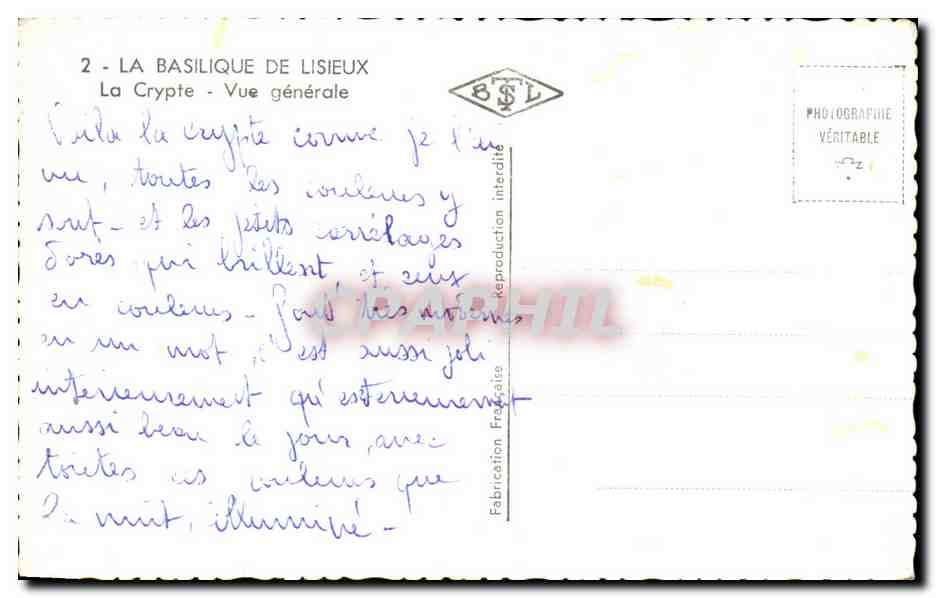 2 - LA BASILIQUE DE LISIEUX
La Crypte - Vue générale
Voila la crypte comme je l'ai
vu, toutes les couleurs y
sont - et les petits carrelages
dorés qui brillent et ceux
en couleurs - très modernes
en un mot, c'est aussi joli
interieurement qu'exterieurement
aussi beau le jour, avec
toutes ces couleurs que
la nuit, illuminé -
BTSL
PHOTOGRAPHIE
VÉRITABLE
Fabrication Française Reproduction interdite
CPAPHIL